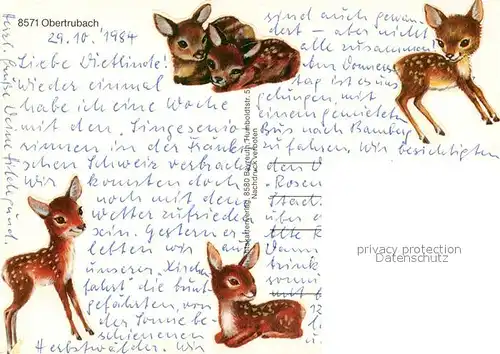 8571 Obertrubach
29.10.1984
Liebe Dietlinde!
Wieder einmal
habe ich eine Woche
mit den "Singesenio-
rinnen in der Fränki-
schen Schweiz verbracht
Wir konnten doch
noch mit dem
Wetter zufrieden
sein. Gestern er-
lebten wir auf
unserer "Kirchen
fahrt" die bunt
gefärbten, von
der Sonne be-
schienenen
Herbstwälder. Wir
sind auch gewan-
dert – aber nicht
alle zusammen.
Donners
tag ist es uns
gelungen, mit
einem gemieteten
Bus nach Bamberg
zu fahren. Wir besichtigten
den D
"Rosen
stadt
über
alte R
Dann
trink
sonni
mit
Herzl. Grüße Deine Hildegund.
verlag, 8580 Bayreuth, Humboldtstr. 5
Nachdruck verboten
privacy protection
Datenschutz